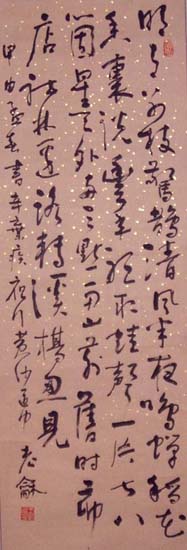 明月别枝驚鵲清風半夜鳴蟬稻花
香裏說豐年听取蛙聲一片七八
箇星天外兩三點雨山前舊時茆
店社林邊路轉溪橋忽見
甲申孟春書辛棄疾夜行黄沙道中 老龢